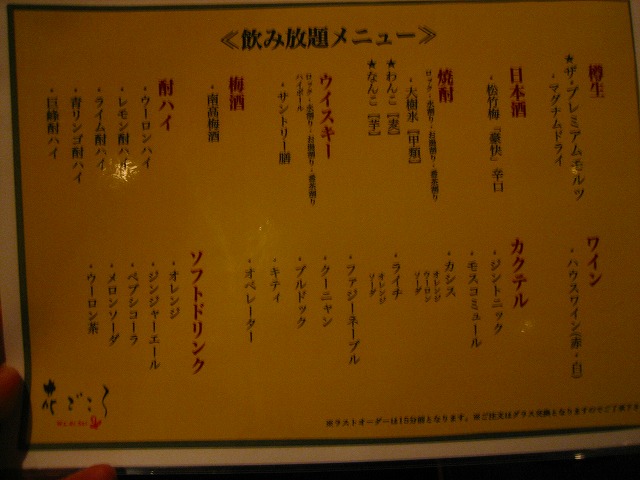 ≪飲み放題メニュー≫
樽生
★ザ・プレミアムモルツ
・マグナムドライ
日本酒
・松竹梅「豪快」辛口
焼酎
ロック・水割り・お湯割り・番茶割り
・大樹氷【甲類】
★わんこ【麦】
★なんこ【芋】
ウイスキー
ロック・水割り・お湯割り・番茶割り
ハイボール
・サントリー膳
梅酒
・南高梅酒
酎ハイ
・ウーロンハイ
・レモン酎ハイ
・ライム酎ハイ
・青リンゴ酎ハイ
・巨峰酎ハイ
ワイン
・ハウスワイン(赤・白)
カクテル
・ジントニック
・モスコミュール
・カシス
オレンジ
ウーロン
ソーダ
・ライチ
オレンジ
ソーダ
・ファジーネーブル
・クーニャン
・ブルドック
・キティ
・オペレーター
ソフトドリンク
・オレンジ
・ジンジャーエール
・ペプシコーラ
・メロンソーダ
・ウーロン茶
花ごころ
※ラストオーダーは15分前となります。※ご注文はグラス交換となりますのでご了承下さ